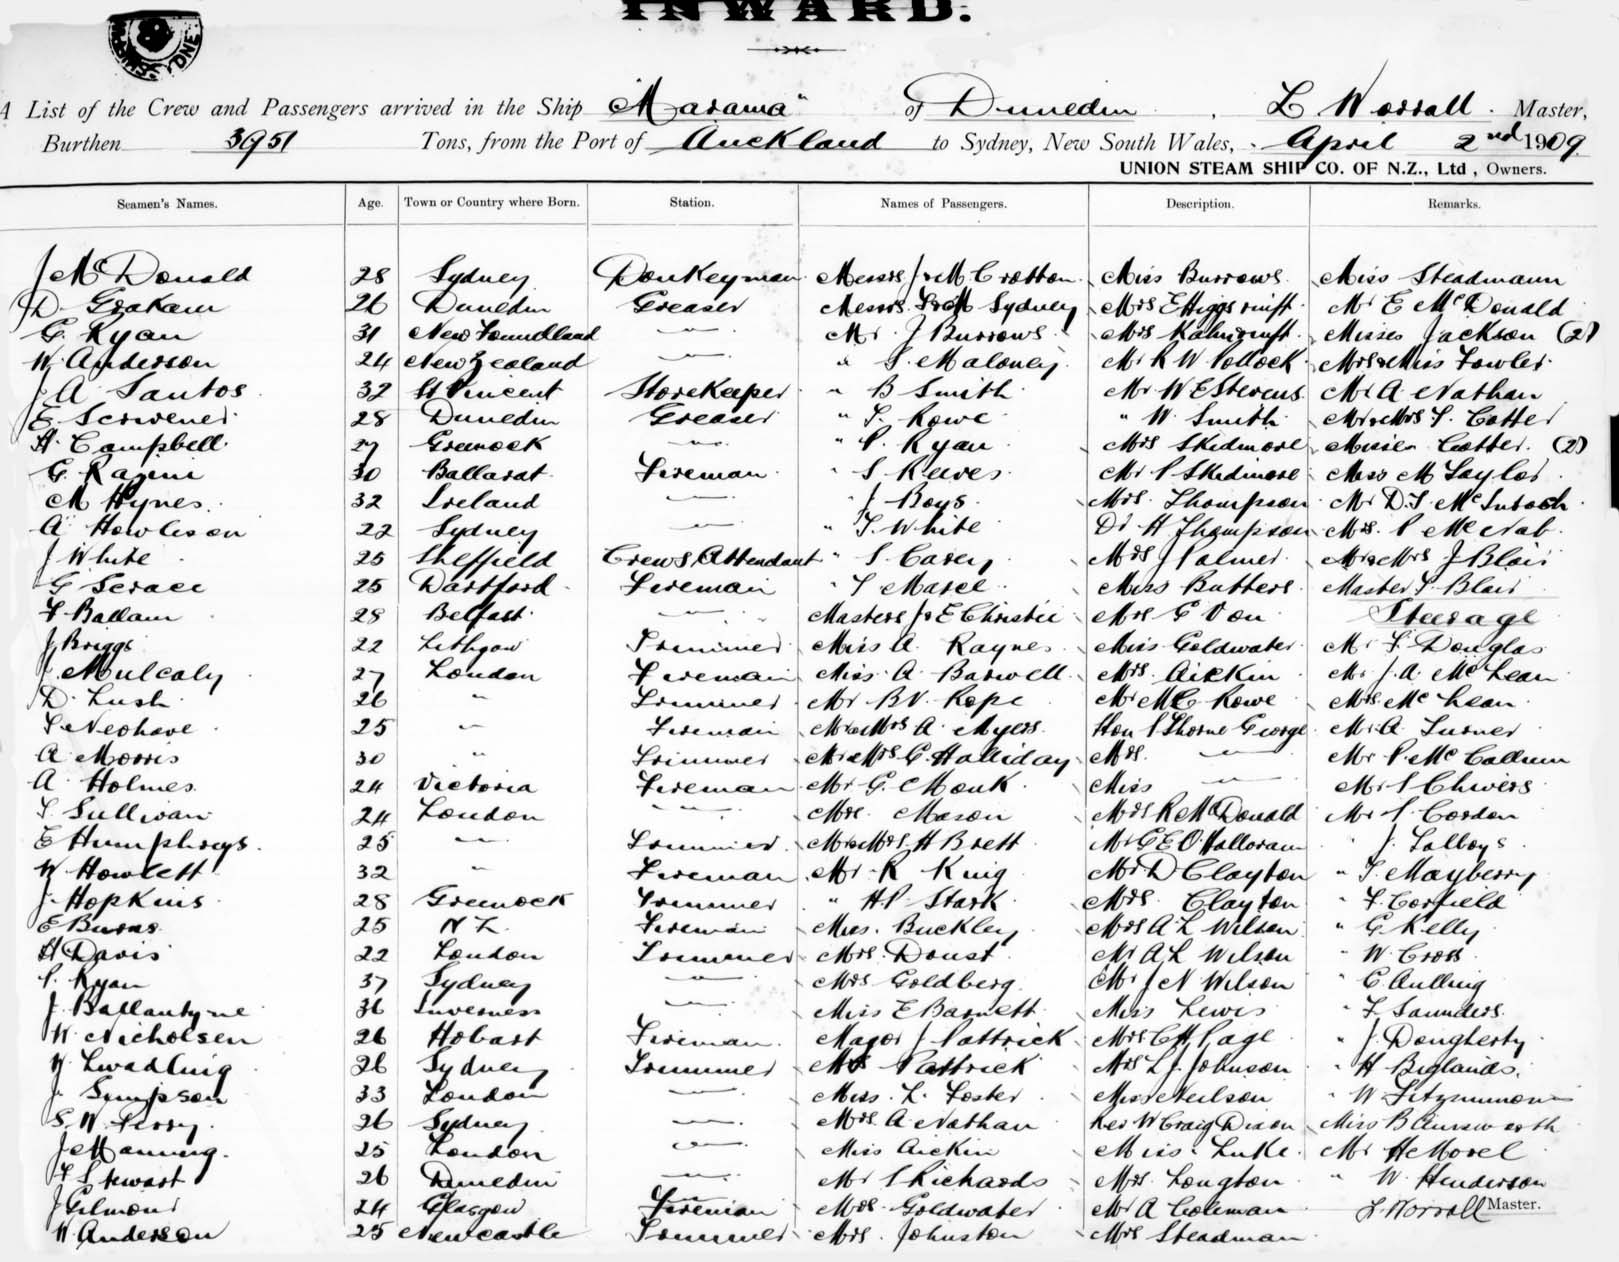 INWARD.
A List of the Crew and Passengers arrived in the Ship "Marama" of Dunedin, L Worrall. Master,
Burthen 3951 Tons, from the Port of Auckland to Sydney, New South Wales, April 2nd 1909
UNION STEAM SHIP CO. OF N.Z., Ltd, Owners.
Seamen's Names. Age. Town or Country where Born. Station. Names of Passengers. Description. Remarks.
J McDonald 28 Sydney Donkeyman Messrs J & M Crotton Miss Burrows Miss Steadmann
D. Graham 26 Dunedin Greaser Messrs Sydney Mrs E Higgs Mr E McDonald
G. Ryan 31 New Foundland " Mr J Burrows Mrs Misses Jackson (2)
W. Anderson 24 New Zealand " " S. Maloney Mr R W Pollock Mrs & Miss Fowler
J A Santos 32 St Vincent StoreKeeper " B Smith Mr W E Stevens Mr A Nathan
E Scrivener 28 Dunedin Greaser " T. Rowe " W. Smith Mr & Mrs T. Cotter
H. Campbell 27 Greenock " " P. Ryan Mrs Skidmore Misses Cotter. (2)
G. 30 Ballarat Fireman " S Reeves Mr P Skidmore Miss M Taylor
M Hynes. 32 Ireland " J Boys Mrs. Thompson Mr D. T. McIntosh
A Howieson 22 Sydney " " T. White Dr H Thompson Mrs. P McNab
J White 25 Sheffield Crews Attendant " S Casey Mrs J Palmer Mr & Mrs J Blair
G Scrace 25 Dartford Fireman " T Miss Butters Master T. Blair
F. Ballam 28 Belfast " Masters J & E Christie Mrs G Von Steerage
J Briggs 22 Lithgow Trimmer Miss A Raynes Miss Goldwater Mr F Douglas
J. Mulcahy 27 London Fireman Miss A. Barwell Mrs. Aickin Mr. J. A. McLean
D. Lush 26 " Trimmer Mr B V. Pope Mr M C. Rowe Mrs. McLean
T. Neohave 25 " Fireman Mr & Mrs A. Myers Hon S Thorne George Mr. A. Turner
A Morris 30 " Trimmer Mr & Mrs G. Halliday Mrs. " Mr P. McCallum
A Holmes 24 Victoria Fireman Mr G. Monk Miss " Mr S Chivers
T. Sullivan 24 London " Mrs. Mason Mrs R McDonald Mr S Cordon
E Humphreys. 25 " Trimmer Mr & Mrs H Brett Mr G E O'Halloran " J. Tallboys
W Howlett 32 " Fireman Mr R King Mr D Clayton " T. Mayberry
J. Hopkins 28 Greenock Trimmer " H P. Stark Mrs. Clayton " F. Corfield
E Burns 25 N Z. Fireman Mrs. Buckley Mrs A. L Wilson " G Kelly
H Davis 22 London Trimmer Mrs. Doust Mr A L Wilson " W. Cross
P. Ryan 37 Sydney " Mrs Goldberg Mr J N Wilson " C.
J. Ballantyne 36 Inverness " Miss E Barnett Miss Lewis " F. Saunders
W Nicholsen 26 Hobart Fireman Major J Pattrick Mrs C H Page " J. Dougherty
W. 26 Sydney Trimmer Mrs Pattrick Mrs L. J. Johnson " H Biglands
J. Simpson 33 London " Miss. L. Foster Miss Neilson " W Fitzsimmons
S. W. Perry 26 Sydney " Mrs. A Nathan Rev W Craig Dixon Miss B Ainsworth
J Manning. 25 London " Miss Aickin Miss. Luke Mr H Morel
F Stewart 26 Dunedin " Mr S Richards Mrs. Longton " W. Henderson
J Gilmour 24 Glasgow Fireman Mrs. Goldwater Mr A Coleman L. Worrall Master.
W. Anderson 25 Newcastle Trimmer Mrs. Johnston Mrs Steadman